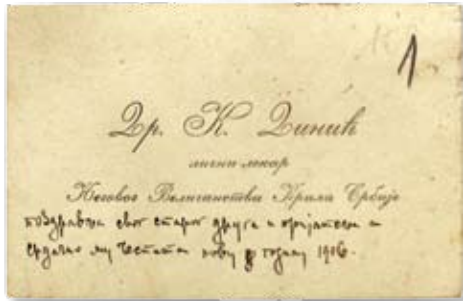 1
Др. К. Динић
лични лекар
Његовог Величанства Краља Србије
поздравља свог старог друга и пријатеља и
срдачно му честита нову годину 1906.